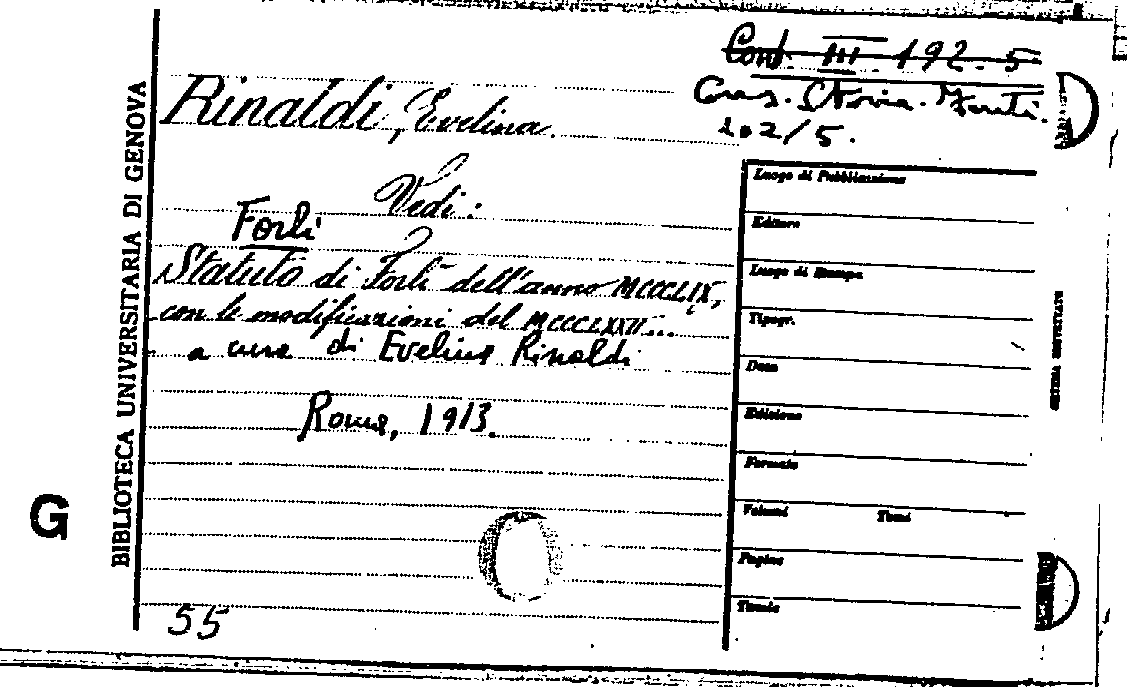 Conf. III. 192. 5
Cons. Storia. Fonti.
102/5.
Rinaldi, Evelina.
Vedi:
Forlì
Statuto di Forlì dell'anno MCCCLIX,
con le modificazioni del MCCCLXXII...
a cura di Evelina Rinaldi
Roma, 1913.
55
BIBLIOTECA UNIVERSITARIA DI GENOVA
G
Luogo di Pubblicazione
Editore
Luogo di Stampa
Tipogr.
Data
Edizione
Formato
Volumi Tomi
Pagine
Tavole